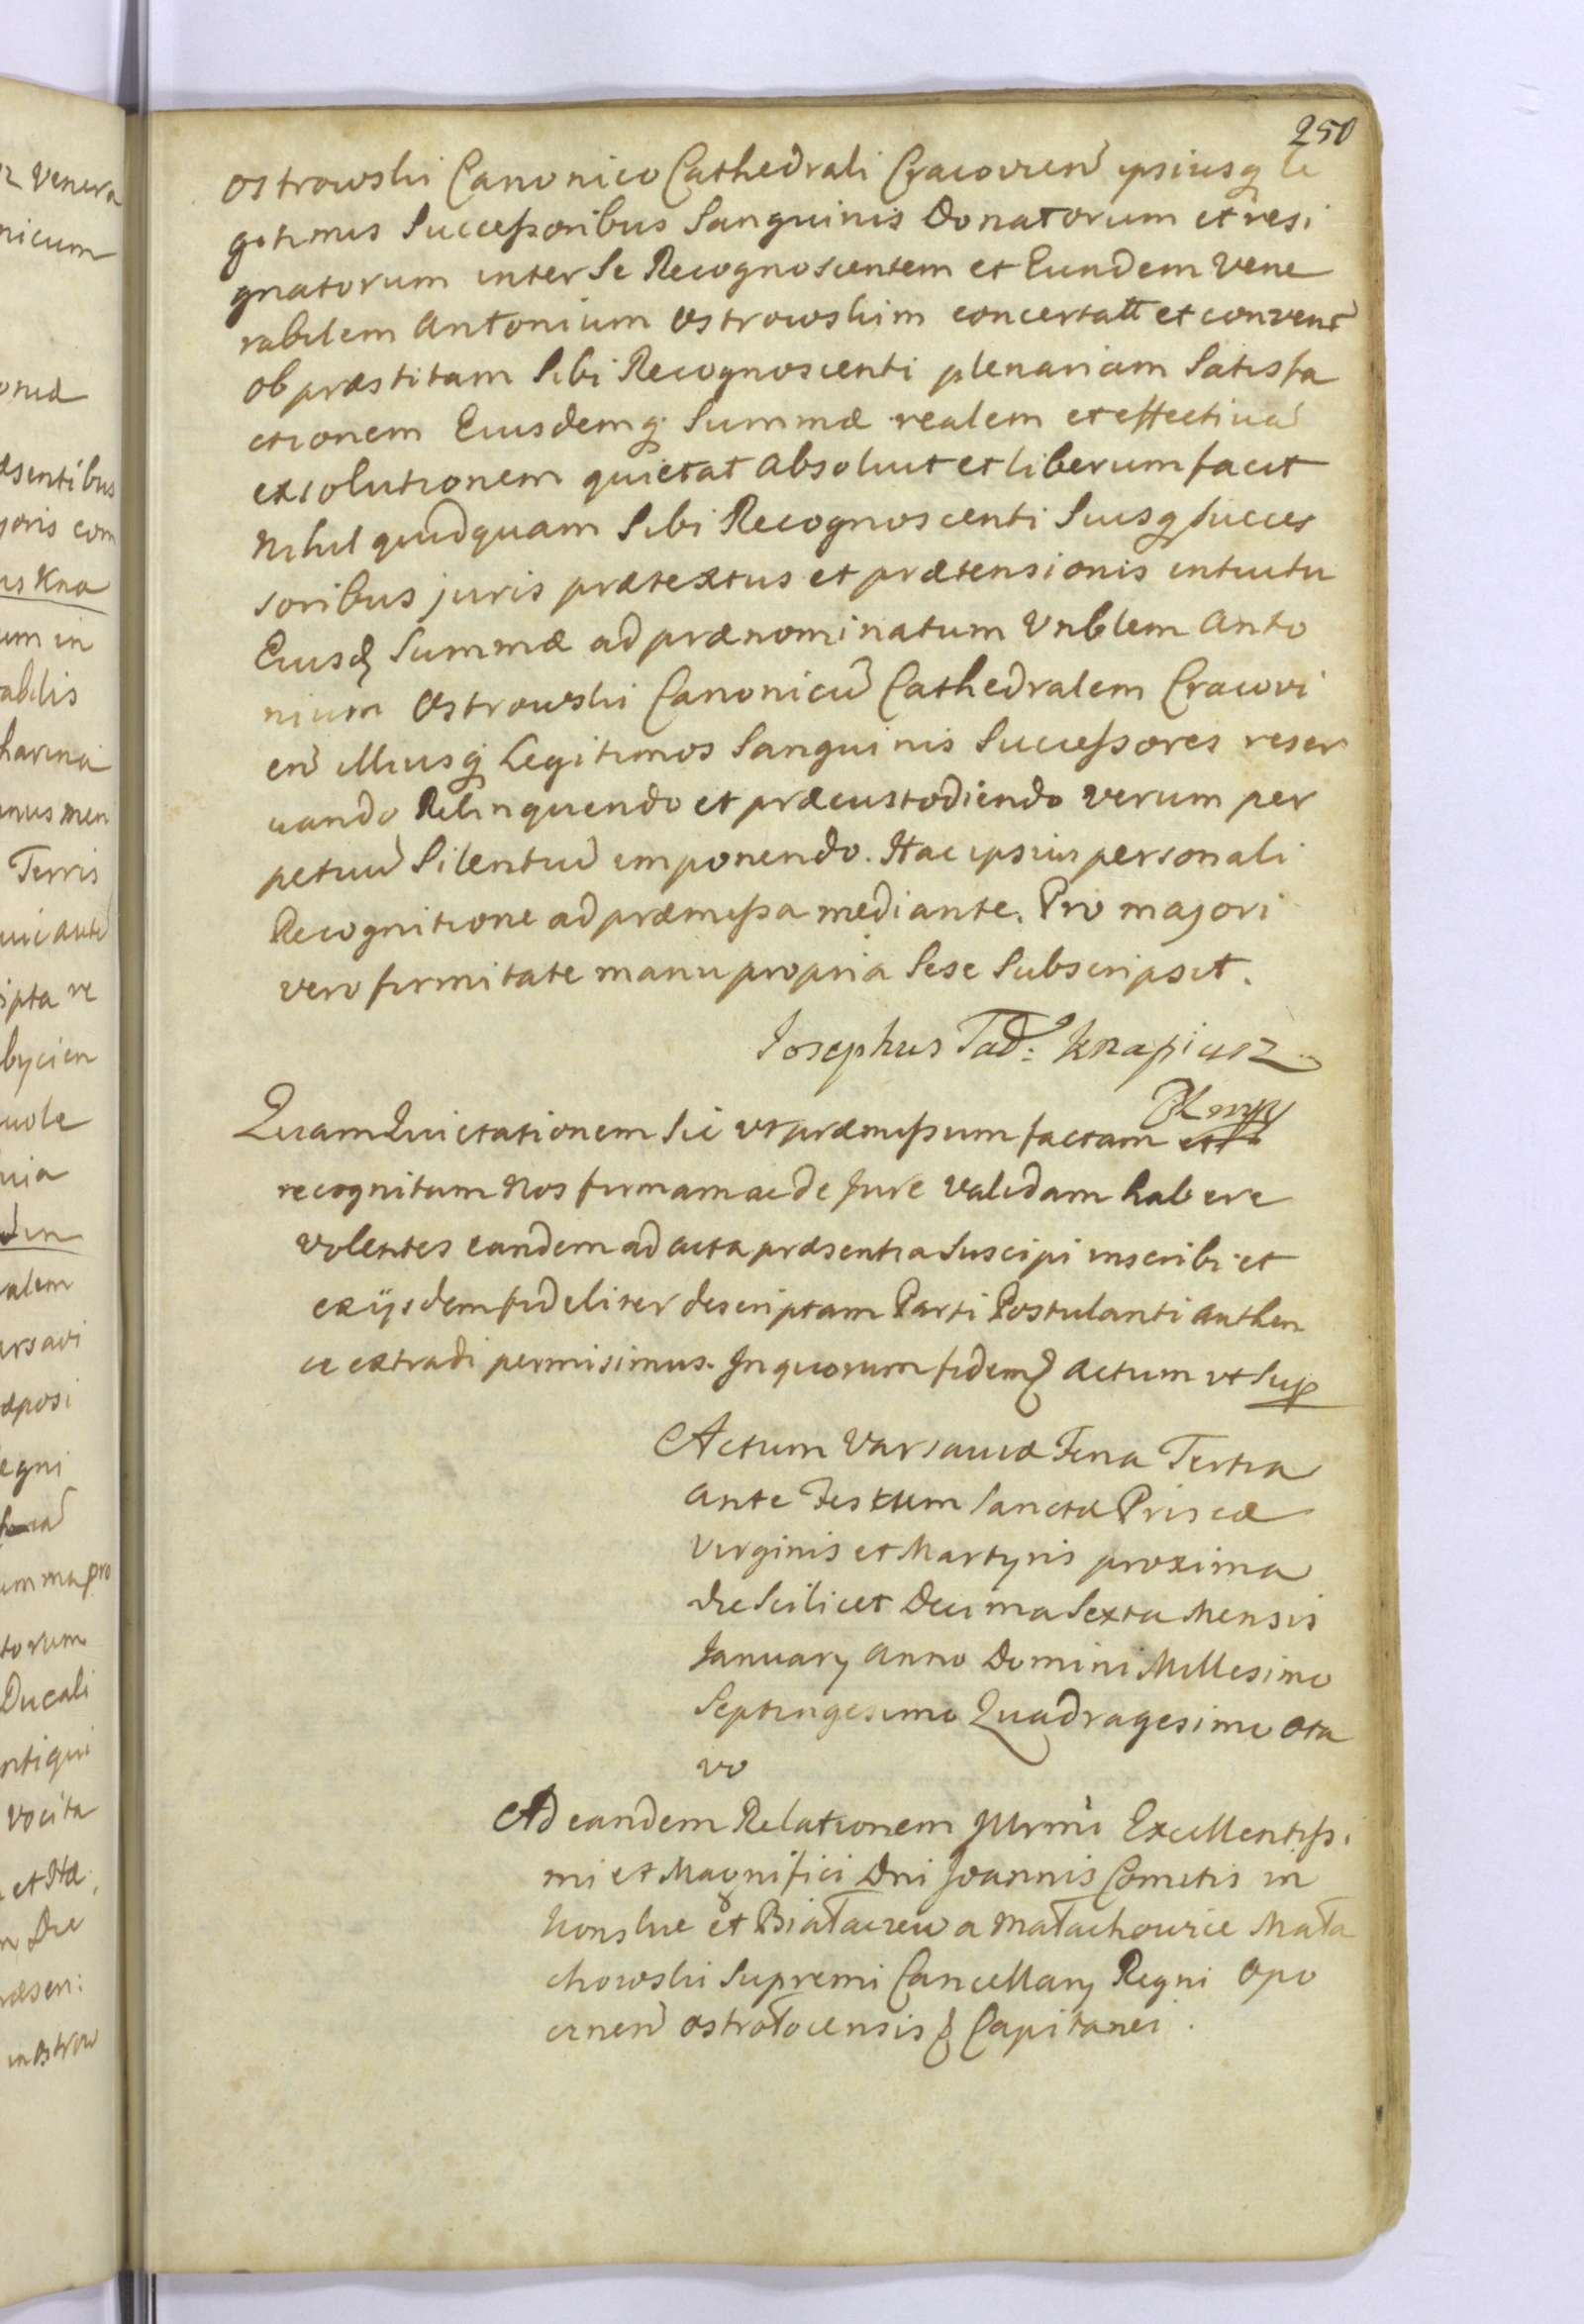 250
Ostrowski Canonico Cathedrali Cracovien ipsiusq le
gitimis Successoribus Sanguinis Donatorum et resi
gnatorum inter Se Recognoscentem et Eundem Vene
rabilem Antonium Ostrowskim concertatt et convent
ob præstitam Sibi Recognoscenti plenariam Satisfa
ctionem Eiusdemq Summæ realem et effectiva
exolutionem quietat Absoluit et liberum facit
Nihil quidquam Sibi Recognoscenti Suisq succes
soribus juris prætextus et prætensionis intuitu
Eiusd Summæ ad prænominatum Vnblem Anto
nium Ostrowski Canonicu Cathedralem Cracovi
en illiusq Legitimos Sanguinis Successores reser
uando Relinquendo et præcustodiendo verum per
petuu Silentiu imponendo. Hac ipsius personali
Recognitione ad præmissa mediante. Pro majori
vero firmitate manu propria Sese Subscripsit.
Josephus Tad: Knapiusz
mp
Quam Quietationem Sic vt præmissum factam
recognitum Nos firmam ac de Jure validam habere
volentes eandem ad acta præsentia Suscipi inscribi et
ex ijsdem fideliter descriptam Parti Postulanti authen
ce extradi permisimus. In quorum fidem Actum vt Sup
Actum Varsauiæ Feria Tertia
ante Festum Sanctæ Priscæ
Virginis et Martyris proxima
die Scilicet Decima Sexta Mensis
January Anno Domini Millesimo
Septingesimo Quadragesimo Octa
vo
Ad eandem Relationem Jllrmi Excellentissi
mi et Magnifici Dni Joannis Comitis in
Konskie et Białaczew a Małachowice Mała
chowski Supremi Cancellary Regni Opo
cinen Ostrołocensis Capitanei.